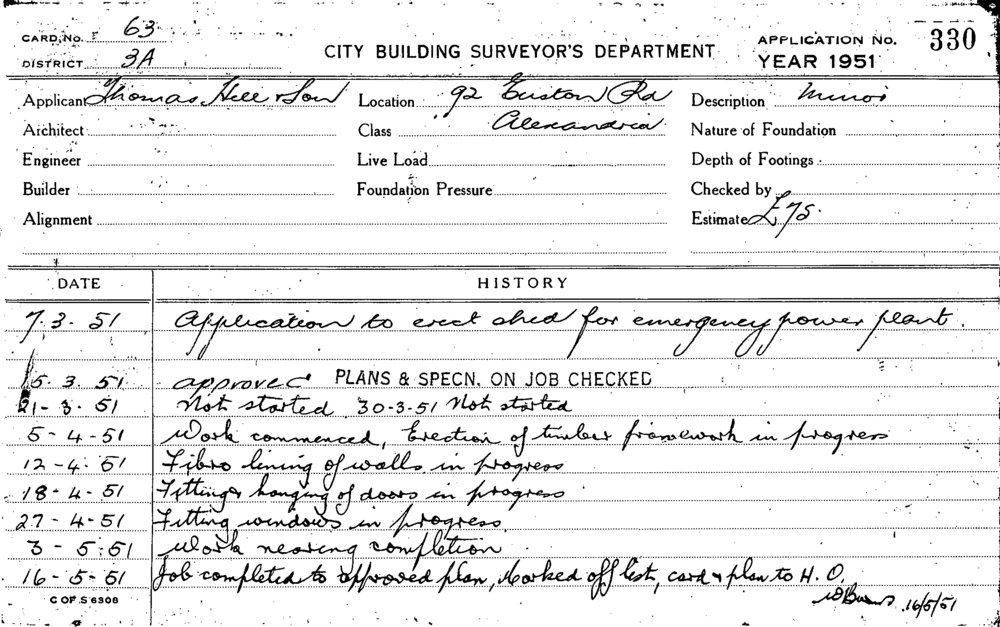 CARD. No. 63
DISTRICT 3A
CITY BUILDING SURVEYOR'S DEPARTMENT
APPLICATION No. 330
YEAR 1951
Applicant Thomas Hill & Son Location 92 Euston Rd Description Minor
Architect Class Alexandria Nature of Foundation
Engineer Live Load Depth of Footings
Builder Foundation Pressure Checked by
Alignment Estimate £75.
DATE HISTORY
7.3.51 Application to erect shed for emergency power plant.
15.3.51 approved PLANS & SPECN. ON JOB CHECKED
21-3-51 Not started 30-3-51 Not started
5-4-51 Work commenced, Erection of timber framework in progress
12-4-51 Fibro lining of walls in progress
18-4-51 Fitting & hanging of doors in progress
27-4-51 Fitting windows in progress.
3-5-51 Work nearing completion
16-5-51 Job completed to approved plan, Marked off list, card & plan to H.O.
C OF S 6308 16/5/51